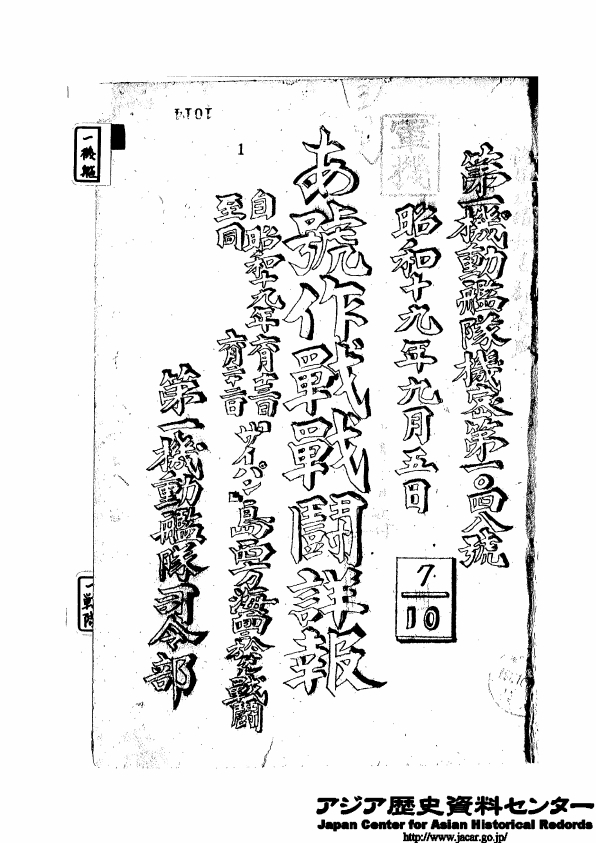 第一機動艦隊機密第一〇四八號
軍機
昭和十九年九月五日
7/10
あ號作戰戰鬪詳報
自昭和十九年六月十三日
至同 六月二十二日
「サイパン」島西方海面ニ於ケル戰鬪
第一機動艦隊司令部
1
1014
一機艦
一戰隊
アジア歴史資料センター
Japan Center for Asian Historical Records
http://www.jacar.go.jp/